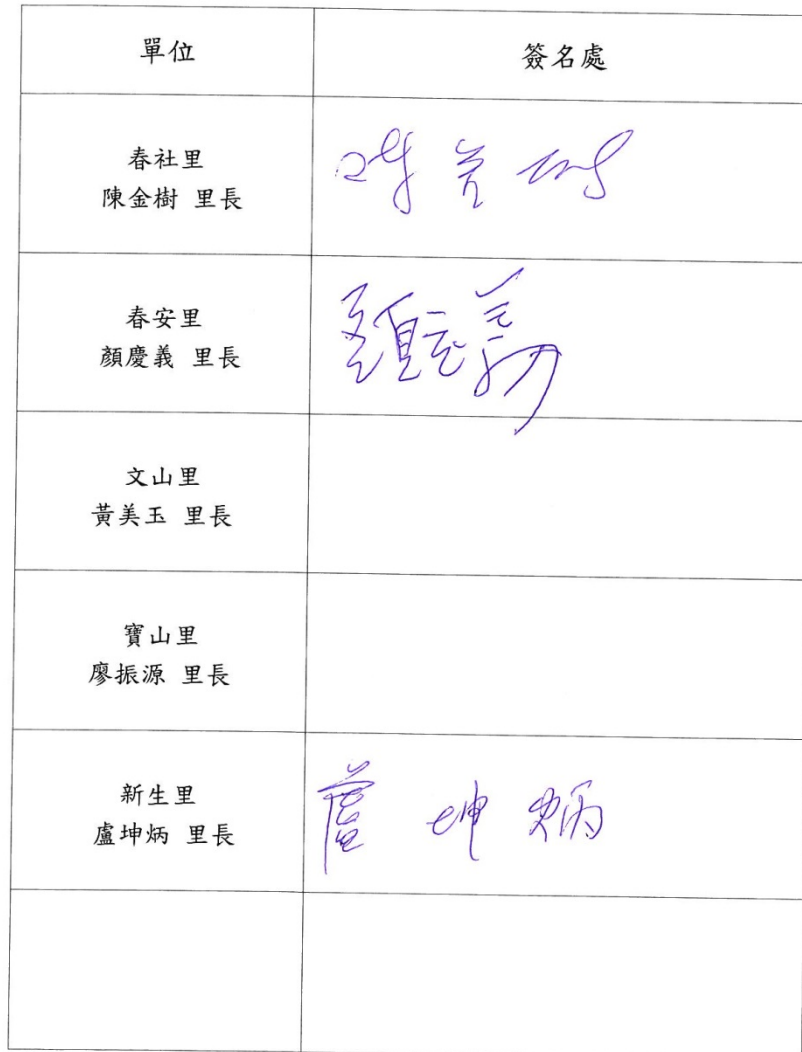 單位
簽名處
春社里
陳金樹 里長
春安里
顏慶義 里長
文山里
黃美玉 里長
寶山里
廖振源 里長
新生里
盧坤炳 里長
盧坤炳